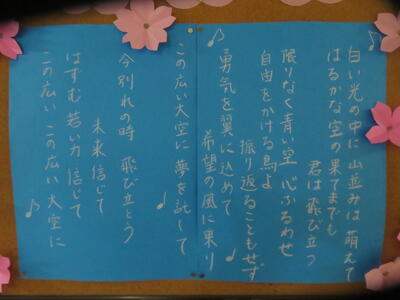 白い光の中に 山並みは萌えて
はるかな空の果てまでも
君は飛び立つ
限りなく青い空 心ふるわせ
自由をかける鳥よ
振り返ることもせず
勇気を翼に込めて
希望の風に乗り
この広い大空に 夢を託して
今別れの時 飛び立とう
未来信じて
はずむ若い力 信じて
この広い この広い 大空に